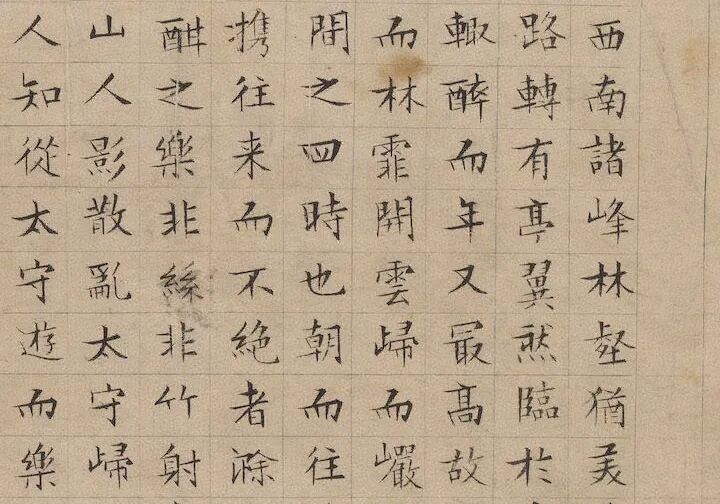 西南諸峰林壑猶美
路轉有亭翼然臨於
輙醉而年又最高故
而林霏開雲歸而巖
間之四時也朝而往
携往来而不絶者滁
酣之樂非絲非竹射
山人影散亂太守歸
人知從太守遊而樂